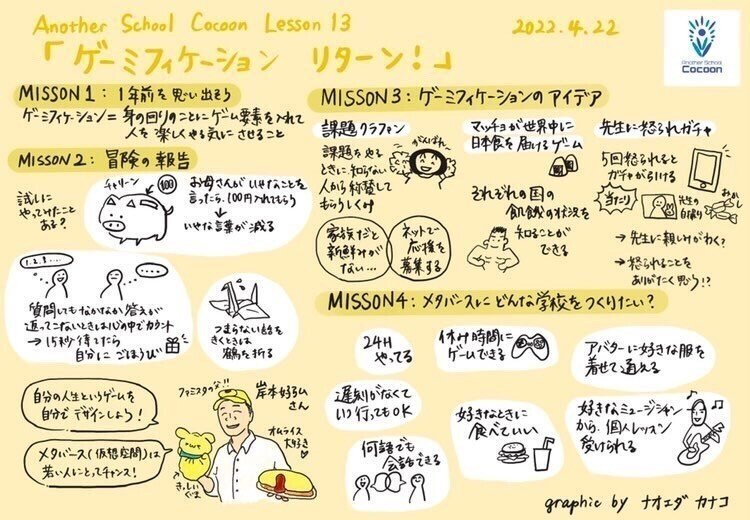 Another School Cocoon Lesson 13
2022.4.22
「ゲーミフィケーション リターン！」
Another School
Cocoon
MISSON1：1年前を思い出そう
ゲーミフィケーション＝身の回りのことにゲーム要素を入れて
人を楽しくやる気にさせること
MISSON2：冒険の報告
試しに
やってけたこと
ある？
チャリーン
100
お母さんがいやなことを
言ったら、100円入れてもらう
↓
いやな言葉が減る
1.2.3…
質問してもなかなか答えが
返ってこないときは心の中でカウント
→15秒待てたら
自分にごほうび
つまらない話を
きくときは
鶴を折る
自分の人生というゲームを
自分でデザインしよう！
メタバース(仮想空間)は
若い人にとってチャンス！
ファミスタの父！！
岸本好弘
さん
オムライス
大好き
きっしぃ
ぐま
MISSON3：ゲーミフィケーションのアイデア
課題クラファン
課題をやる
ときに、知らない
人から称賛して
もらうしくみ
がんばれ
家族だと
新鮮みが
ない…
ネットで
応援を
募集する
マッチョが世界中に
日本食を届けるゲーム
それぞれの国の
飢餓の状況を
知ることが
できる
先生に怒られガチャ
5回怒られると
ガチャが引ける
当たり
先生の
自撮り
おかし
→先生に親しみがわく？
→怒られることを
ありがたく思う！？
MISSON4：メタバースにどんな学校をつくりたい？
24H
やってる
休み時間に
ゲームできる
アバターに好きな服を
着せて通える
遅刻がなくて
いつ行ってもOK
好きなときに
食べていい
好きなミュージシャン
から、個人レッスン
受けられる
何語でも
会話できる
graphic by ナオエダ カナコ